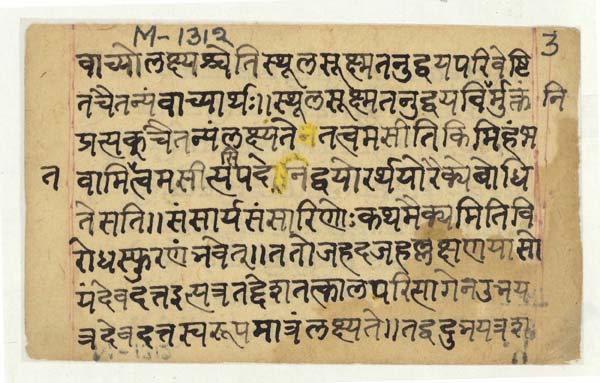 M-1312
3
वाच्यो लक्ष्यश्चेति स्थूलसूक्ष्मतनुद्वयपरिवेष्टि
तचैतन्यं वाच्यार्थः॥ स्थूलसूक्ष्मतनुद्वयविर्मुक्तं नि
प्रत्यक्चैतन्यं लक्ष्यंते तत्वमसीति किमिहं भ
त
वामि त्वमसी पदे नि द्वयोरर्थयोरैक्ये बोधि
ते सति॥ संसार्यसंसारिणोः कथमैक्यमिति वि
रोधस्फुरणं भवेत्॥ ततो जहदजहल्लक्षणया सो
यं देवदत्त इत्यत्र तद्देशतत्कालपरित्यागेन उभय
त्र देवदत्तस्वरूपमात्रं लक्ष्यते॥ तद्वदुभयत्र श